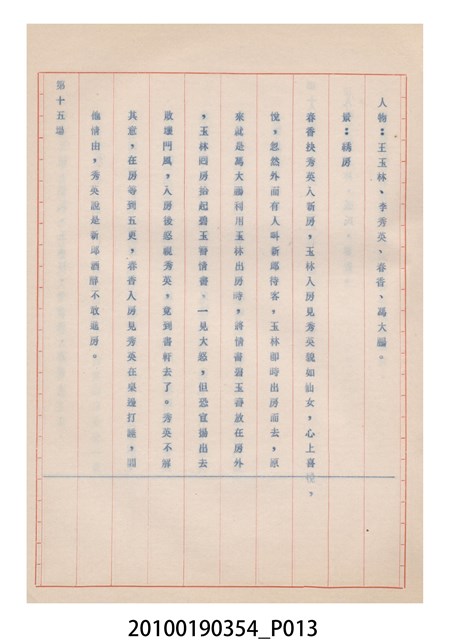 人物：王玉林、李秀英、春香、馬大騙。
景：繡房
春香扶秀英入新房，玉林入房見秀英貌如仙女，心上喜悅，
悅，忽然外面有人叫新郎待客，玉林卽時出房而去，原
來就是馬大騙利用玉林出房時，將情書與玉喜放在房外
，玉林回房拾起碧玉喜情書，一見大怒，但恐宣揚出去
敗壞門風，入房後怒視秀英，竟到書軒去了。秀英不解
其意，在房等到五更，春香入房見秀英在桌邊打睡，問
他情由，秀英說是新郎酒醉不敢進房。
第十五場
20100190354_P013